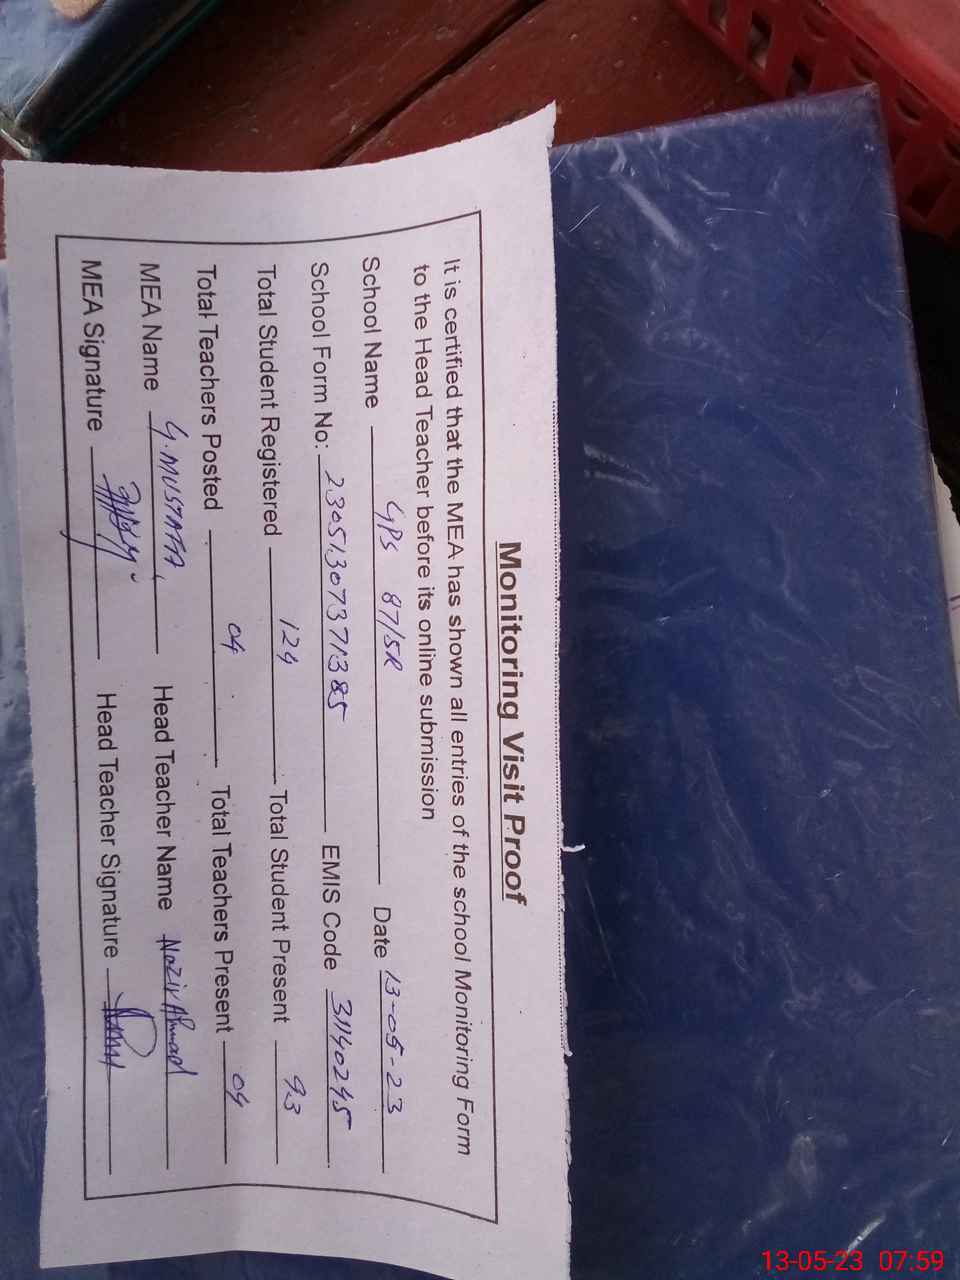 Monitoring Visit Proof
It is certified that the MEA has shown all entries of the school Monitoring Form
to the Head Teacher before its online submission
School Name GPS 87/5R Date 13-05-23
School Form No: 23051307371385 EMIS Code 31140245
Total Student Registered 124 Total Student Present 93
Total Teachers Posted 04 Total Teachers Present 04
MEA Name G.MUSTAFA, Head Teacher Name Nazir Ahmad
MEA Signature Head Teacher Signature
13-05-23 07:59